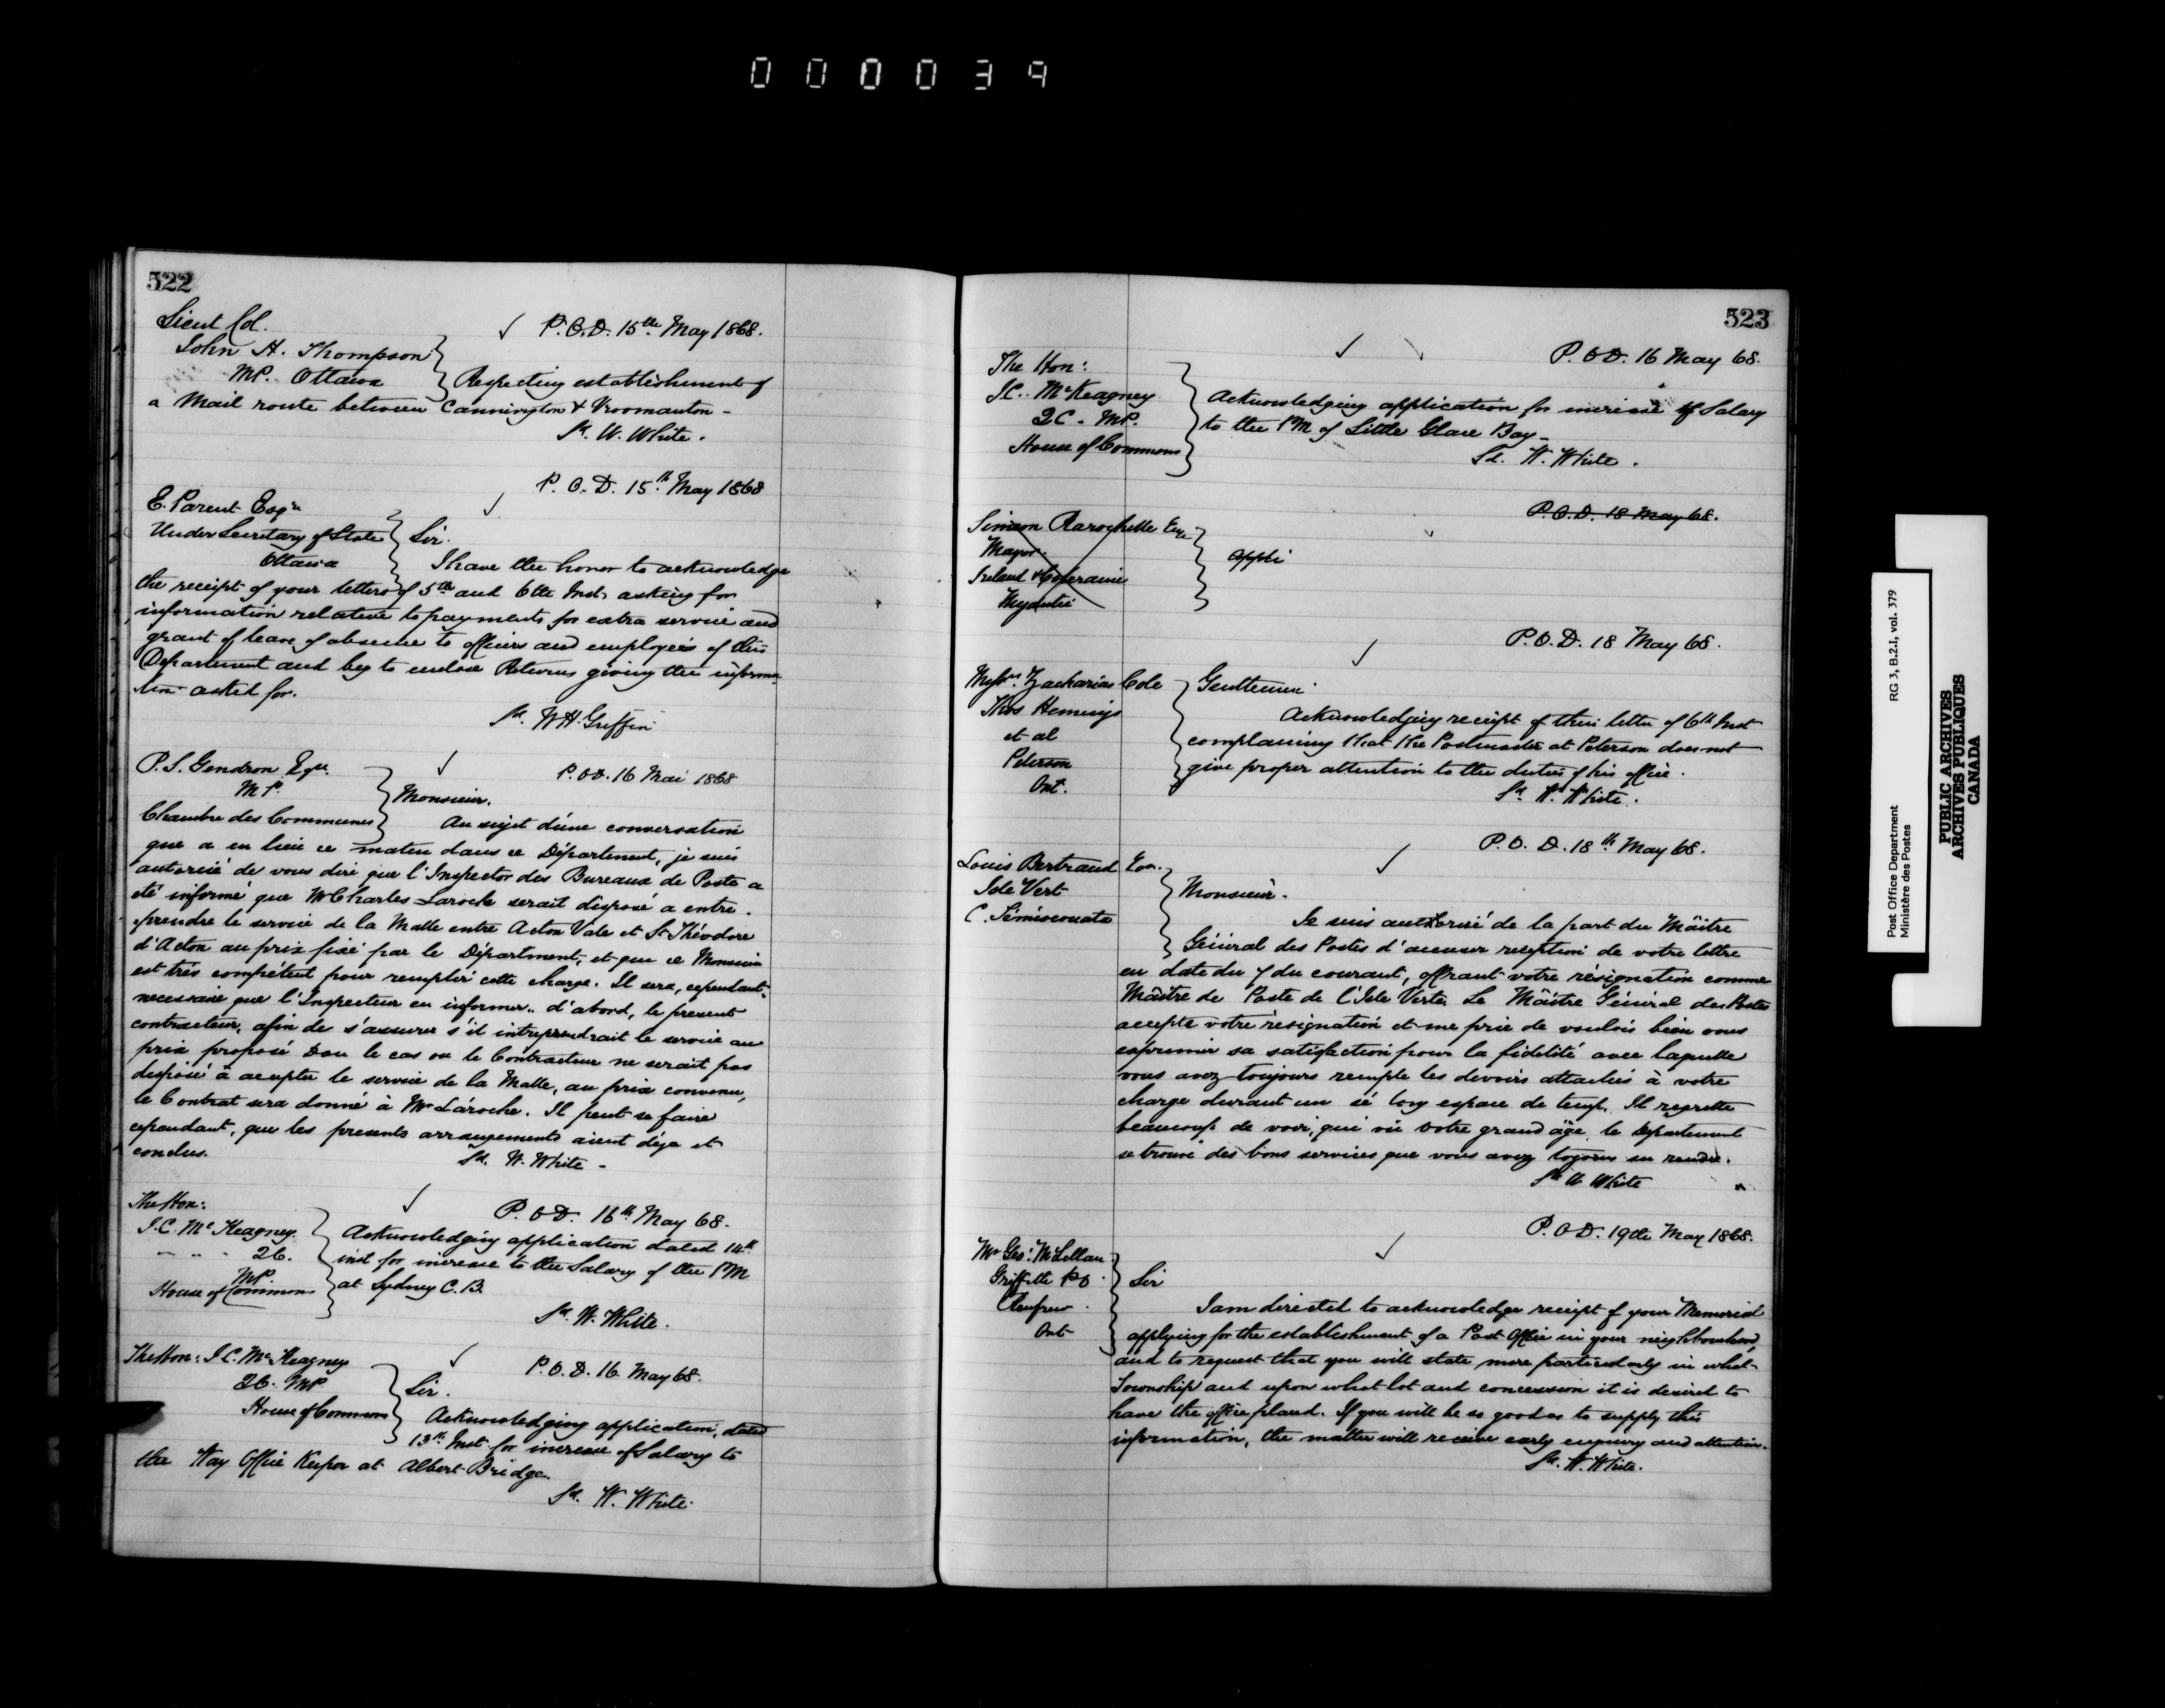 000039
522
Lieut Col.
John H. Thompson
MP. Ottawa
P.O.D. 15th May 1868.
Respecting establishment of
a Mail route between Cannington & Vroomanton -
Sd. W. White.
P.O.D. 15th May 1868
E. Parent Esqre
Under Secretary of State
Ottawa
Sir.
I have the honor to acknowledge
the receipt of your letters of 5th and 6th Inst. asking for
information relative to payments for extra service and
grant of leave of absence to officers and employees of this
Department and beg to enclose Returns giving the informa-
tion asked for.
Sd. W.H. Griffin
P.S. Gendron Esqre.
M.P.
Chambre des Communes
P.O.D. 16 Mai 1868
Monsieur.
Au sujet d'une conversation
que a eu lieu ce matin dans ce Département, je suis
autorisé de vous dire que l'Inspector des Bureaux de Poste a
été informé que Mr Charles Laroche serait disposé a entre-
prendre le service de la Malle entre Acton Vale et St Théodore
d'Acton au prix fixé par le Départment, et que ce Monsieur
est très compétent pour remplir cette charge. Il sera, cependant,
necessaire que l'Inspecteur en informe.. d'abord, le present
contracteur, afin de s'assurer s'il intreprendrait le service au
prix proposé Dan le cas ou le Contracteur ne serait pas
disposé à accepter le service de la Malle, au prix convenu,
le Contrat sera donné à Mr Laroche. Il peut se faire
cependant, que les presents arrangements aient déja et
conclus.
Sd. W. White -
The Hon:
J.C. McKeagney
" " - 2C.
MP.
House of Commons
P.O.D. 16th May 68.
Acknowledging application dated 14th
inst for increase to the Salary of the PM
at Sydney C.B.
Sd. W. White.
The Hon: J.C. McKeagney
2C. MP
House of Commons
P.O.D. 16 May 68.
Sir.
Acknowledging application, dated
13th Inst for increase of Salary to
the Way Office Keeper at Albert Bridge.
Sd. W. White.
523
P.O.D. 16 May 68.
The Hon:
J.C. McKeagney
2C. MP.
House of Commons
Acknowledging application for increase of Salary
to the PM of Little Glace Bay -
Sd. W. White.
P.O.D. 18 May 68.
Simeon Rarochelle Esqe
Mayor.
Ireland & Coleraine
Megantic
appli
P.O.D. 18 May 68.
Messrs. Zacharias Cole
Thos Hemings
et al
Peterson
Ont.
Gentlemen
Acknowledging receipt of their letter of 6th Inst
complaining that the Postmaster at Peterson does not
give proper attention to the duties of his office.
Sd. W. White.
P.O.D. 18th May 68.
Louis Bertrand Esqr.
Isle Vert
C. Témisconata
Monsieur.
Je suis authorisé de la part du Maître
Général des Postes d'accuser reception de votre lettre
en date du 7 du courant, offrant votre résignation comme
Maître de Poste de l'Isle Verte. Le Maître Général des Postes
accepte votre résignation et me prie de vouloir bien vous
exprimer sa satisfaction pour la fidelité avec laquelle
vous avez toujours remple les devoirs attachés à votre
charge durant un sé long espace de temp. Il regrette
beaucoup de voir, qui vù votre grand âge, le Departement
se trouve des bons services que vous avez toujours su rendre.
Sd W White
P.O.D. 19th May 1868.
Mr Geo: McLellan
Griffith PO
Renfrew.
Ont
Sir
I am directed to acknowledge receipt of your Memorial
applying for the establishment of a Post Office in your neighbourhood,
and to request that you will state more particularly in what
Township and upon what lot and concession it is desired to
have the office placed. If you will be so good as to supply this
information, the matter will receive early enquiry and attention.
Sd. W. White.
Post Office Department
Ministère des Postes
RG 3, B.2.I, vol. 379
PUBLIC ARCHIVES
ARCHIVES PUBLIQUES
CANADA